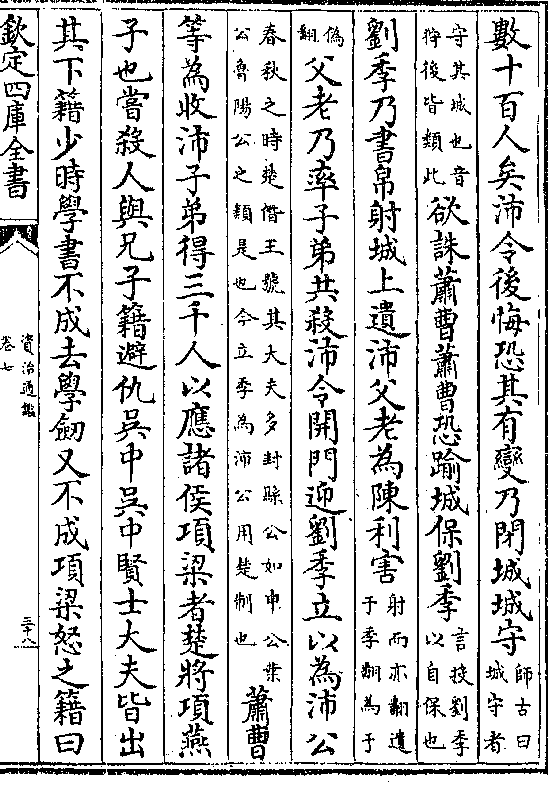 數十百人矣沛令後悔恐其有變乃閉城城守師古曰城守者
守其城也音狩後皆類此欲誅蕭曹蕭曹恐踰城保劉季言投劉季以自保也
劉季乃書帛射城上遺沛父老為陳利害射而亦翻遺于季翻為于
偽翻父老乃率子弟共殺沛令開門迎劉季立以為沛公
春秋之時楚僭王號其大夫多封縣公如申公葉公魯陽公之類是也今立季為沛公用楚制也蕭曹
等為收沛子弟得三千人以應諸侯項梁者楚將項燕
子也嘗殺人與兄子籍避仇吳中吳中賢士大夫皆出
其下籍少時學書不成去學劒又不成項梁怒之籍曰
欽定四庫全書
資治通鑑
卷七
三十八